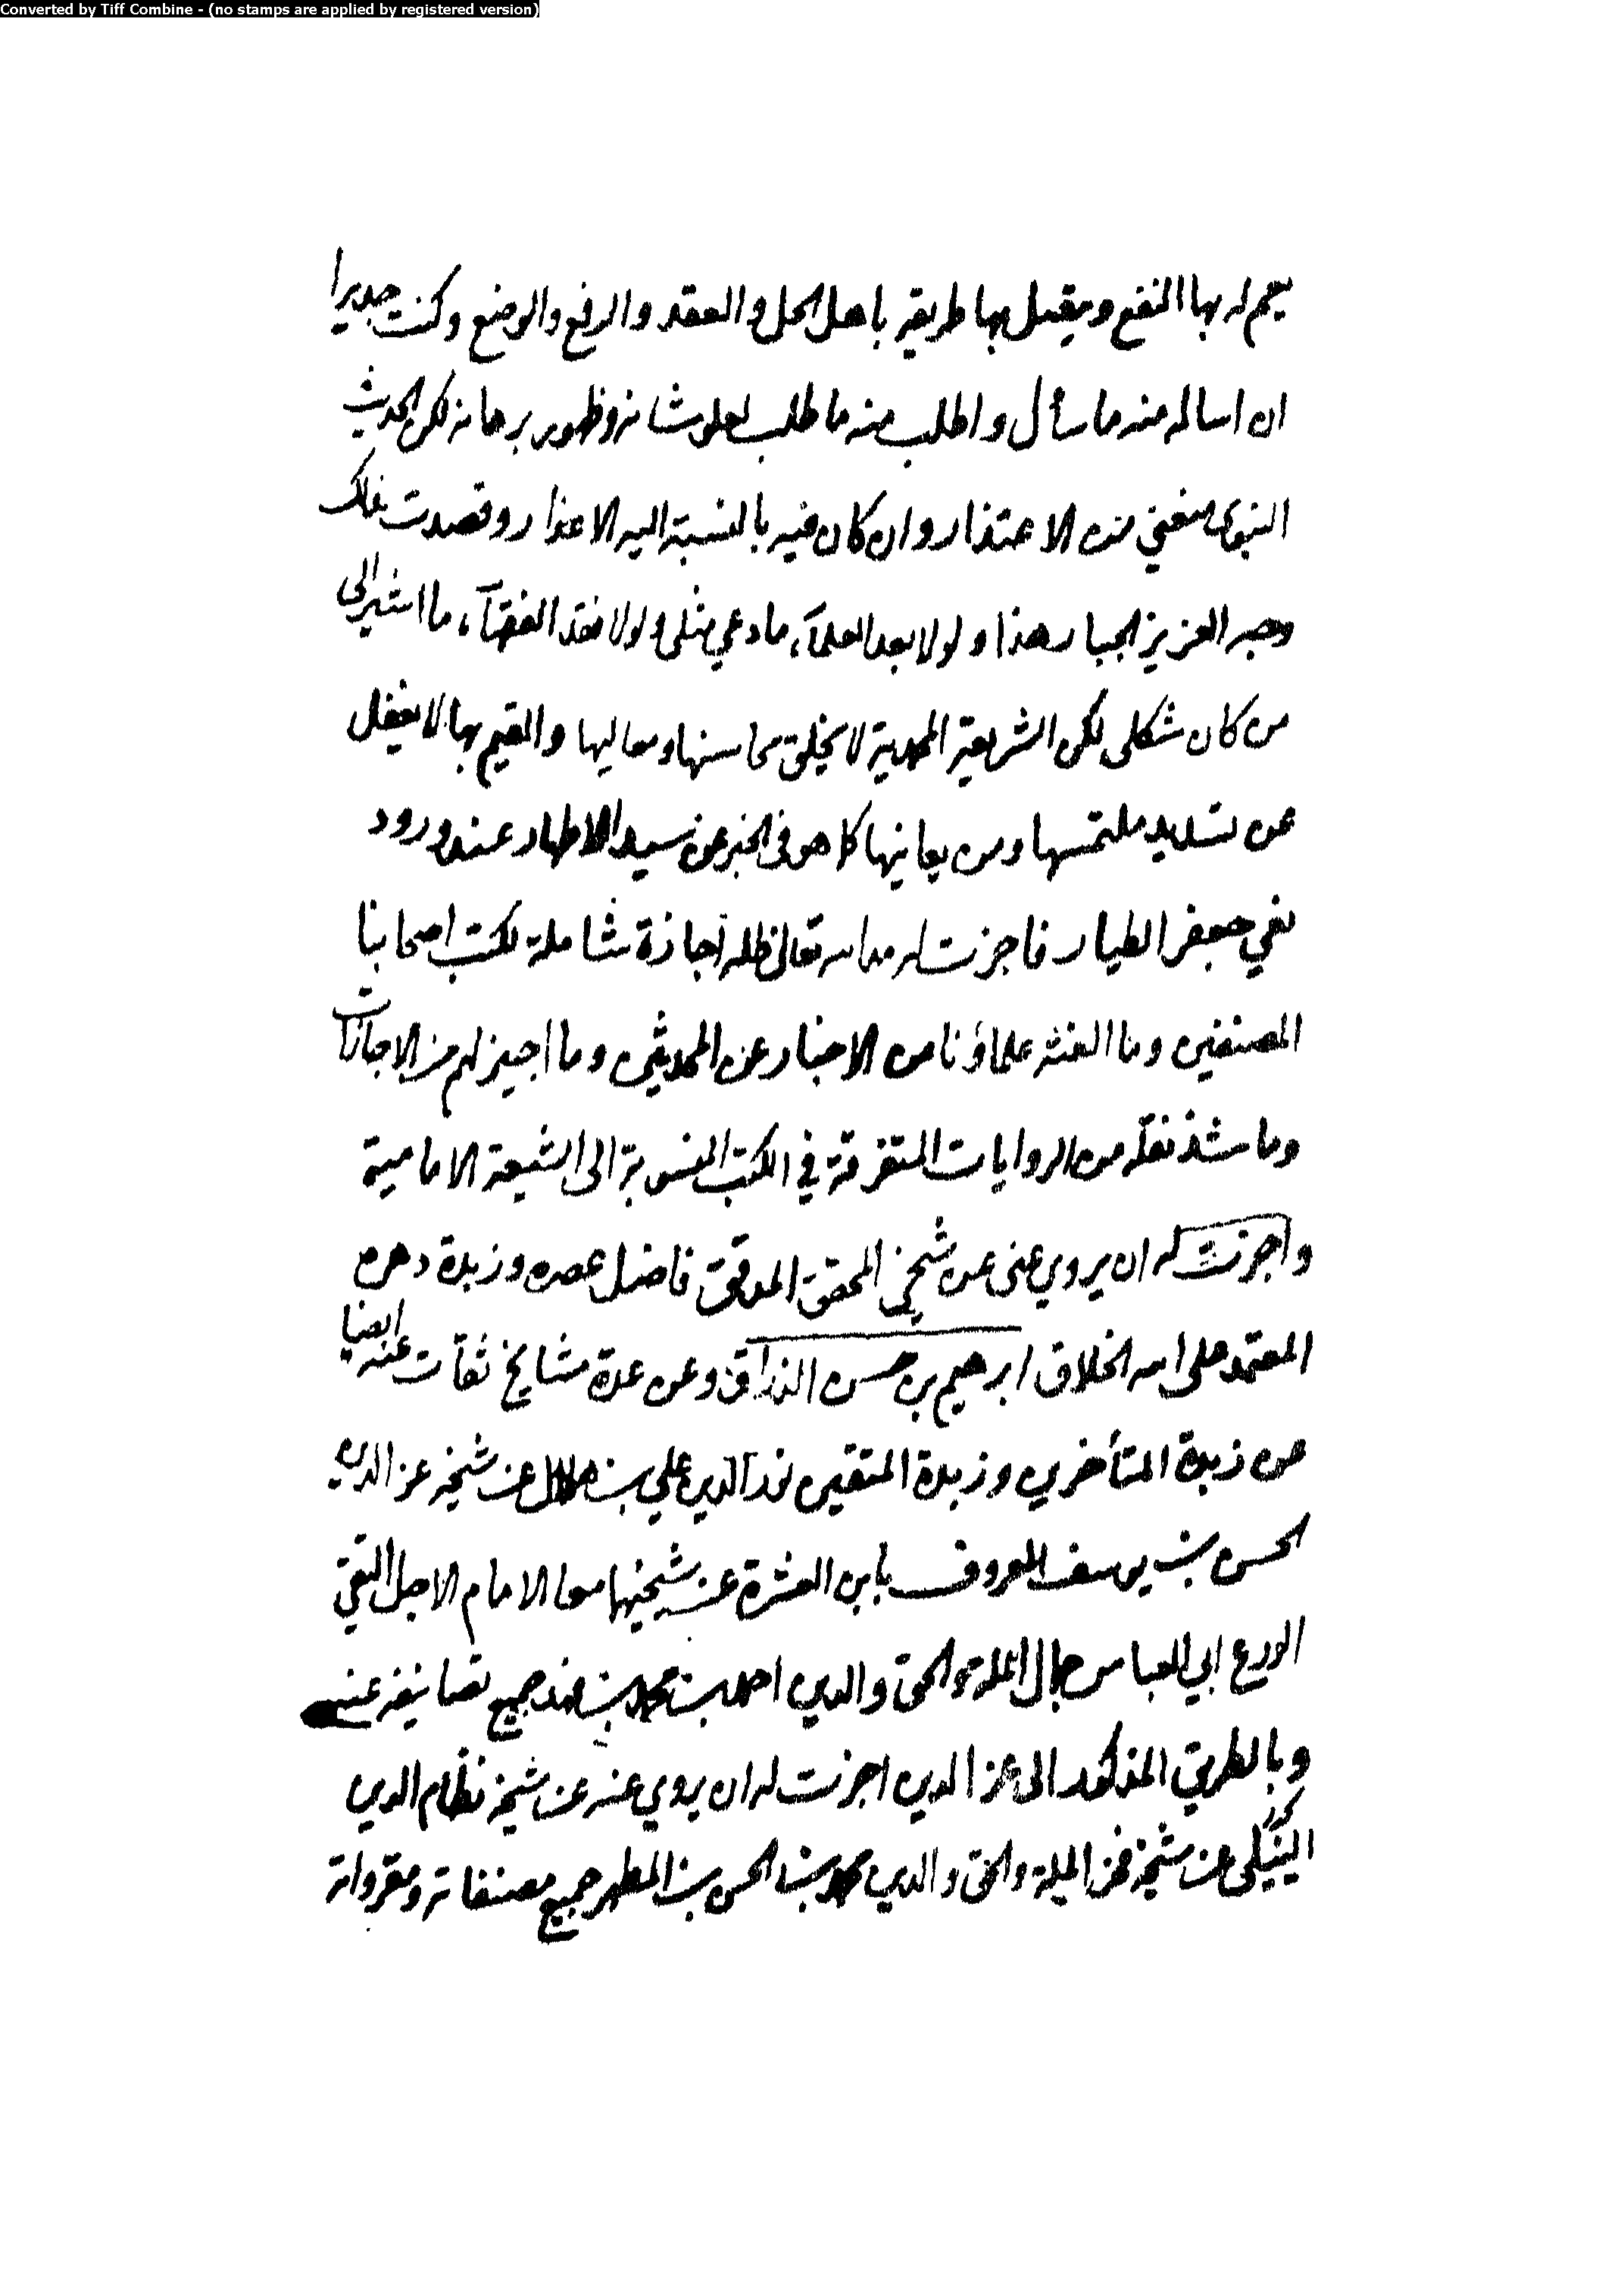 Converted by Tiff Combine - (no stamps are applied by registered version)
يعم له بها النفع ويقبل بها طريقه باهل الحل والعقد والرفع والوضع وكنت جديرا
ان اساله منه ما سأل واطلب منه ما طلب لعلو شانه وظهور برهانه لكن الحديث
النبوى منعني من الاعتذار وان كان فيه بالنسبة اليه الاعذار وقصدت بذلك
وجه العزيز الجبار هذا ولولا بعد العلمآء ما دعي مثلى ولولا فقد الفقهآء ما اشير الى
من كان شكلى لكن الشريعة المحمدية لا يخلق محاسنها ومعاليها والقيم بها لا يغفل
عن تسديد ملتمسها ومن يعانيها كما هو في الخبر عن سيد الاطهار عند ورود
نعي جعفر الطيار فاجزت له مد الله تعالى ظله اجازة شاملة لكتب اصحابنا
المصنفين وما الفته علماؤنا من الاخبار عن المحدثين وما اجيز لهم من الاجازات
وما شذ نقله من الروايات المتفرقة في الكتب المنسوبة الى الشيعة الامامية
واجزت له ان يروي عنى عن شيخي المحقق المدقق فاضل عصره وزبدة دهره
المعتمد على الله الخلاق ابرهيم بن حسن الذراق وعن عدة مشايخ ثقات عنه ايضا
عن زبدة المتأخرين وزبدة المتقين نور الدين علي بن هلال عن شيخه عز الدين
الحسن بن يوسف المعروف بابن العشرة عن شيخيهما معا الامام الاجل التقي
الورع ابي العباس جمال الملة والحق والدين احمد بن محمد بن فهد جميع تصانيفه عنه
وبالطريق المذكور الى عز الدين اجزت له ان يروي عنه عن شيخه نظام الدين
النيلى عن شيخه فخر الملة والحق والدين محمد بن الحسن بن المطهر جميع مصنفاته ومقرواته